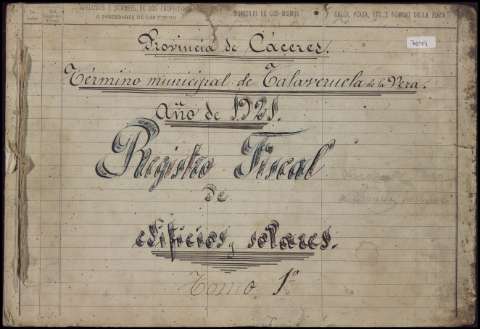 Provincia de Cáceres.
Término municipal de Talaveruela de la Vera.
Año de 1921.
Registro Fiscal
de
edificios y solares.
Tomo 1º